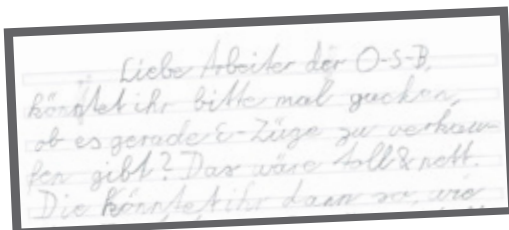 Liebe Arbeiter der O-S-B,
könntet ihr bitte mal gucken,
ob es gerade E-Züge zu verkau-
fen gibt? Das wäre toll & nett.
Die könntet ihr dann so, wie